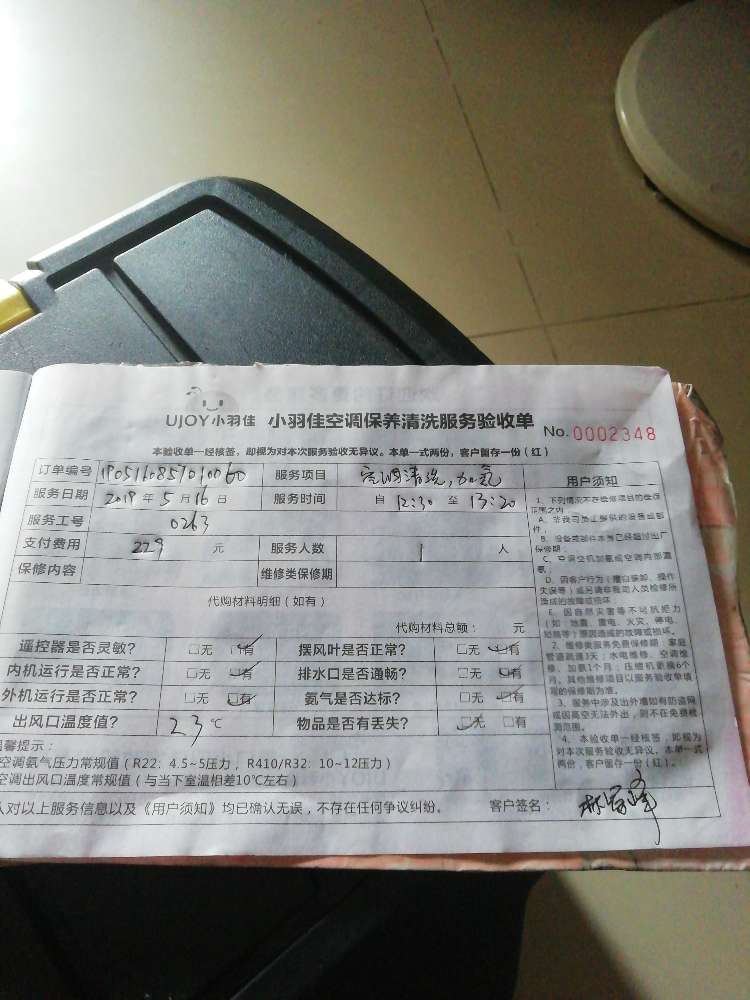 UJOY小羽佳 小羽佳空调保养清洗服务验收单 No.0002348
本验收单一经核签，即视为对本次服务验收无异议。本单一式两份，客户留存一份（红）
订单编号 1905160857010060 服务项目 空调清洗，加氨
服务日期 2019年5月16日 服务时间 自 12:30 至 13:20
服务工号 0263
支付费用 229 元 服务人数 1 人
保修内容 维修类保修期
代购材料明细（如有）
代购材料总额： 元
遥控器是否灵敏？ □无 □有 摆风叶是否正常？ □无 □有
内机运行是否正常？ □无 □有 排水口是否通畅？ □无 □有
外机运行是否正常？ □无 □有 氨气是否达标？ □无 □有
出风口温度值？ 23 ℃ 物品是否有丢失？ □无 □有
温馨提示：
空调氨气压力常规值（R22：4.5~5压力，R410/R32：10~12压力）
空调出风口温度常规值（与当下室温相差10℃左右）
人对以上服务信息以及《用户须知》均已确认无误，不存在任何争议纠纷。 客户签名：
用户须知
1、下列情况不在维修项目的免保
范围之内
A、非我司员工提供的设备或部
件，
B、设备或部件本身已经超过出厂
保修期；
D、因客户行为（擅自拆卸、操作
失误等）或另请非我司人员检修所
造成的故障或损坏
E、因自然灾害等不可抗拒力
（如地震、雷电、火灾、停电、
短路等）原因造成的故障或损坏。
2、维修类服务免费保修期：家庭
管道疏通3天；水电维修、空调维
修、加氨1个月；压缩机更换6个
月。其他维修项目以服务验收单填
写的保修期为准。
3、服务中涉及出外墙如有防盗网
或因高空无法外出，则不在免费检
测范围。
4、本验收单一经核签，即视为
对本次服务验收无异议，本单一式
两份，客户留存一份（红）。